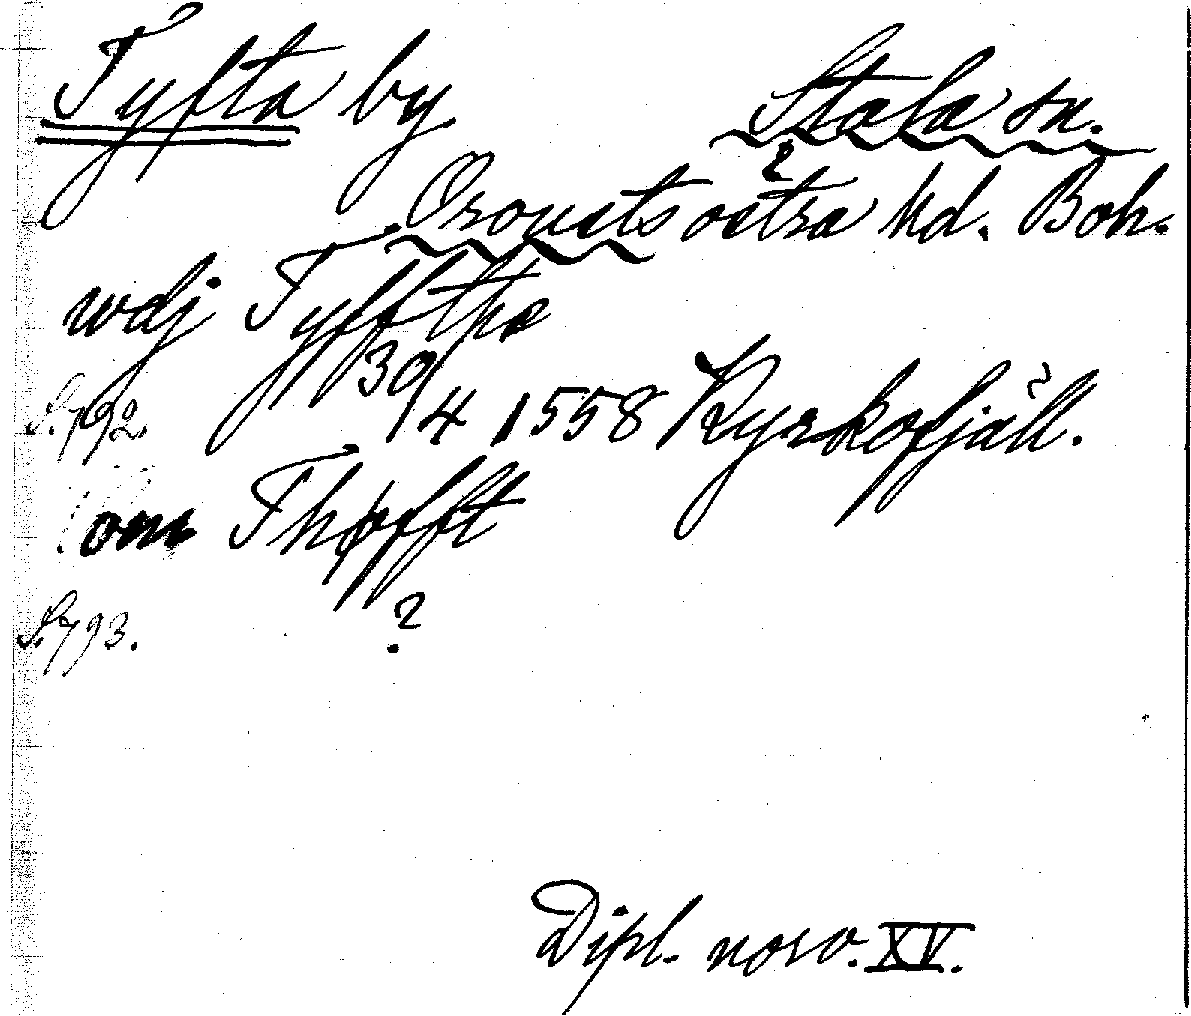 Tyfta by Stala sn.
Orousts östra hd. Boh.
wdj Tyffthe
S. 792. 30/4 1558 Kyrkofjäll.
om Thøfft
S. 793. ?
Dipl. norv. XV.